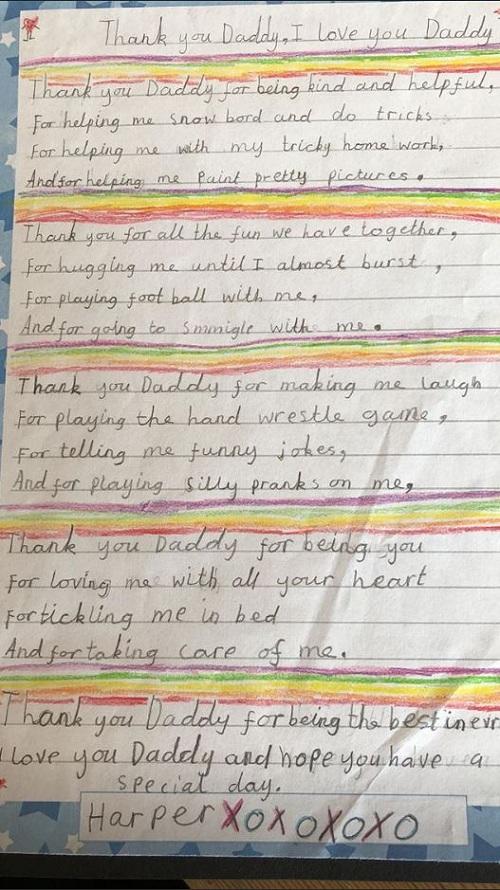 Thank you Daddy, I love you Daddy
Thank you Daddy for being kind and helpful,
For helping me snow bord and do tricks
For helping me with my tricky home work,
And for helping me Paint pretty pictures.
Thank you for all the fun we have together,
For hugging me until I almost burst,
For playing foot ball with me,
And for going to Smmigle with me.
Thank you Daddy for making me laugh
For playing the hand wrestle game,
For telling me funny jokes,
And for playing silly pranks on me,
Thank you Daddy for being you
For loving me with all your heart
For tickling me in bed
And for taking care of me.
Thank you Daddy for being the best in evr
I love you Daddy and hope you have a
special day.
Harper XOXOXOXO